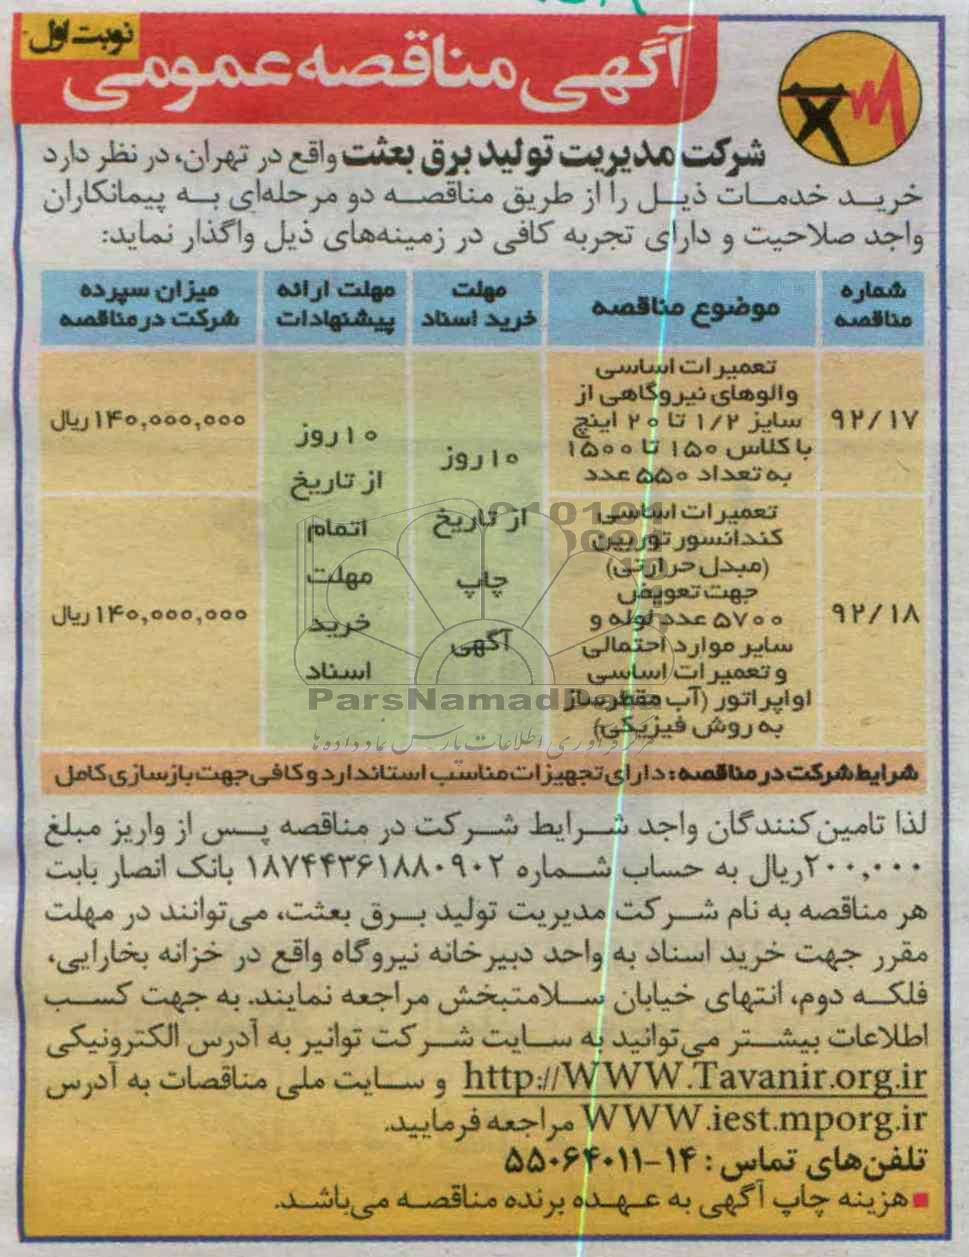 نوبت اول
آگهی مناقصه عمومی
شرکت مدیریت تولید برق بعثت واقع در تهران، در نظر دارد
خرید خدمات ذیل را از طریق مناقصه دو مرحله‌ای به پیمانکاران
واجد صلاحیت و دارای تجربه کافی در زمینه‌های ذیل واگذار نماید:
شماره مناقصه
موضوع مناقصه
مهلت خرید اسناد
مهلت ارائه پیشنهادات
میزان سپرده شرکت در مناقصه
۹۲/۱۷
تعمیرات اساسی
والوهای نیروگاهی از
سایز ۱/۲ تا ۲۰ اینچ
با کلاس ۱۵۰ تا ۱۵۰۰
به تعداد ۵۵۰ عدد
۱۰ روز
از تاریخ
چاپ
آگهی
۱۰ روز
از تاریخ
اتمام
مهلت
خرید
اسناد
۱۴۰,۰۰۰,۰۰۰ ریال
۹۲/۱۸
تعمیرات اساسی
کندانسور توربین
(مبدل حرارتی)
جهت تعویض
۵۷۰۰ عدد لوله و
سایر موارد احتمالی
و تعمیرات اساسی
اواپراتور (آب مقطرساز
به روش فیزیکی)
۱۴۰,۰۰۰,۰۰۰ ریال
ParsNamadData
مرکز فرآوری اطلاعات پارس نماد داده ها
شرایط شرکت در مناقصه: دارای تجهیزات مناسب استاندارد و کافی جهت بازسازی کامل
لذا تامین‌کنندگان واجد شرایط شرکت در مناقصه پس از واریز مبلغ
۲۰۰,۰۰۰ریال به حساب شماره ۱۸۷۴۴۳۶۱۸۸۰۹۰۲ بانک انصار بابت
هر مناقصه به نام شرکت مدیریت تولید برق بعثت، می‌توانند در مهلت
مقرر جهت خرید اسناد به واحد دبیرخانه نیروگاه واقع در خزانه بخارایی،
فلکه دوم، انتهای خیابان سلامتبخش مراجعه نمایند. به جهت کسب
اطلاعات بیشتر می‌توانید به سایت شرکت توانیر به آدرس الکترونیکی
http://WWW.Tavanir.org.ir و سایت ملی مناقصات به آدرس
WWW.iest.mporg.ir مراجعه فرمایید.
تلفن‌های تماس: ۱۴-۵۵۰۶۴۰۱۱
هزینه چاپ آگهی به عهده برنده مناقصه می‌باشد.